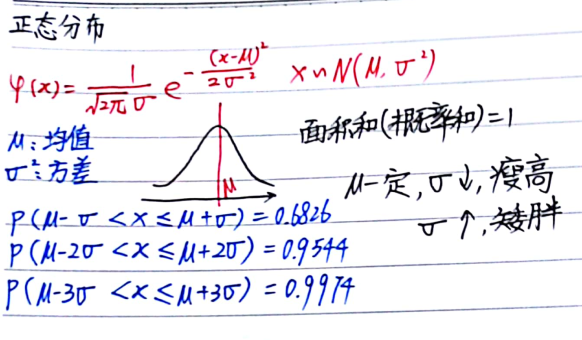 正态分布
φ(x)=1/(√2π σ) e^-(x-μ)²/2σ² x~N(μ,σ²)
面积和(概率和)=1
μ:均值
σ²:方差
μ
μ一定,σ↓,瘦高
σ↑,矮胖
P(μ-σ<x≤μ+σ)=0.6826
P(μ-2σ<x≤μ+2σ)=0.9544
P(μ-3σ<x≤μ+3σ)=0.9974